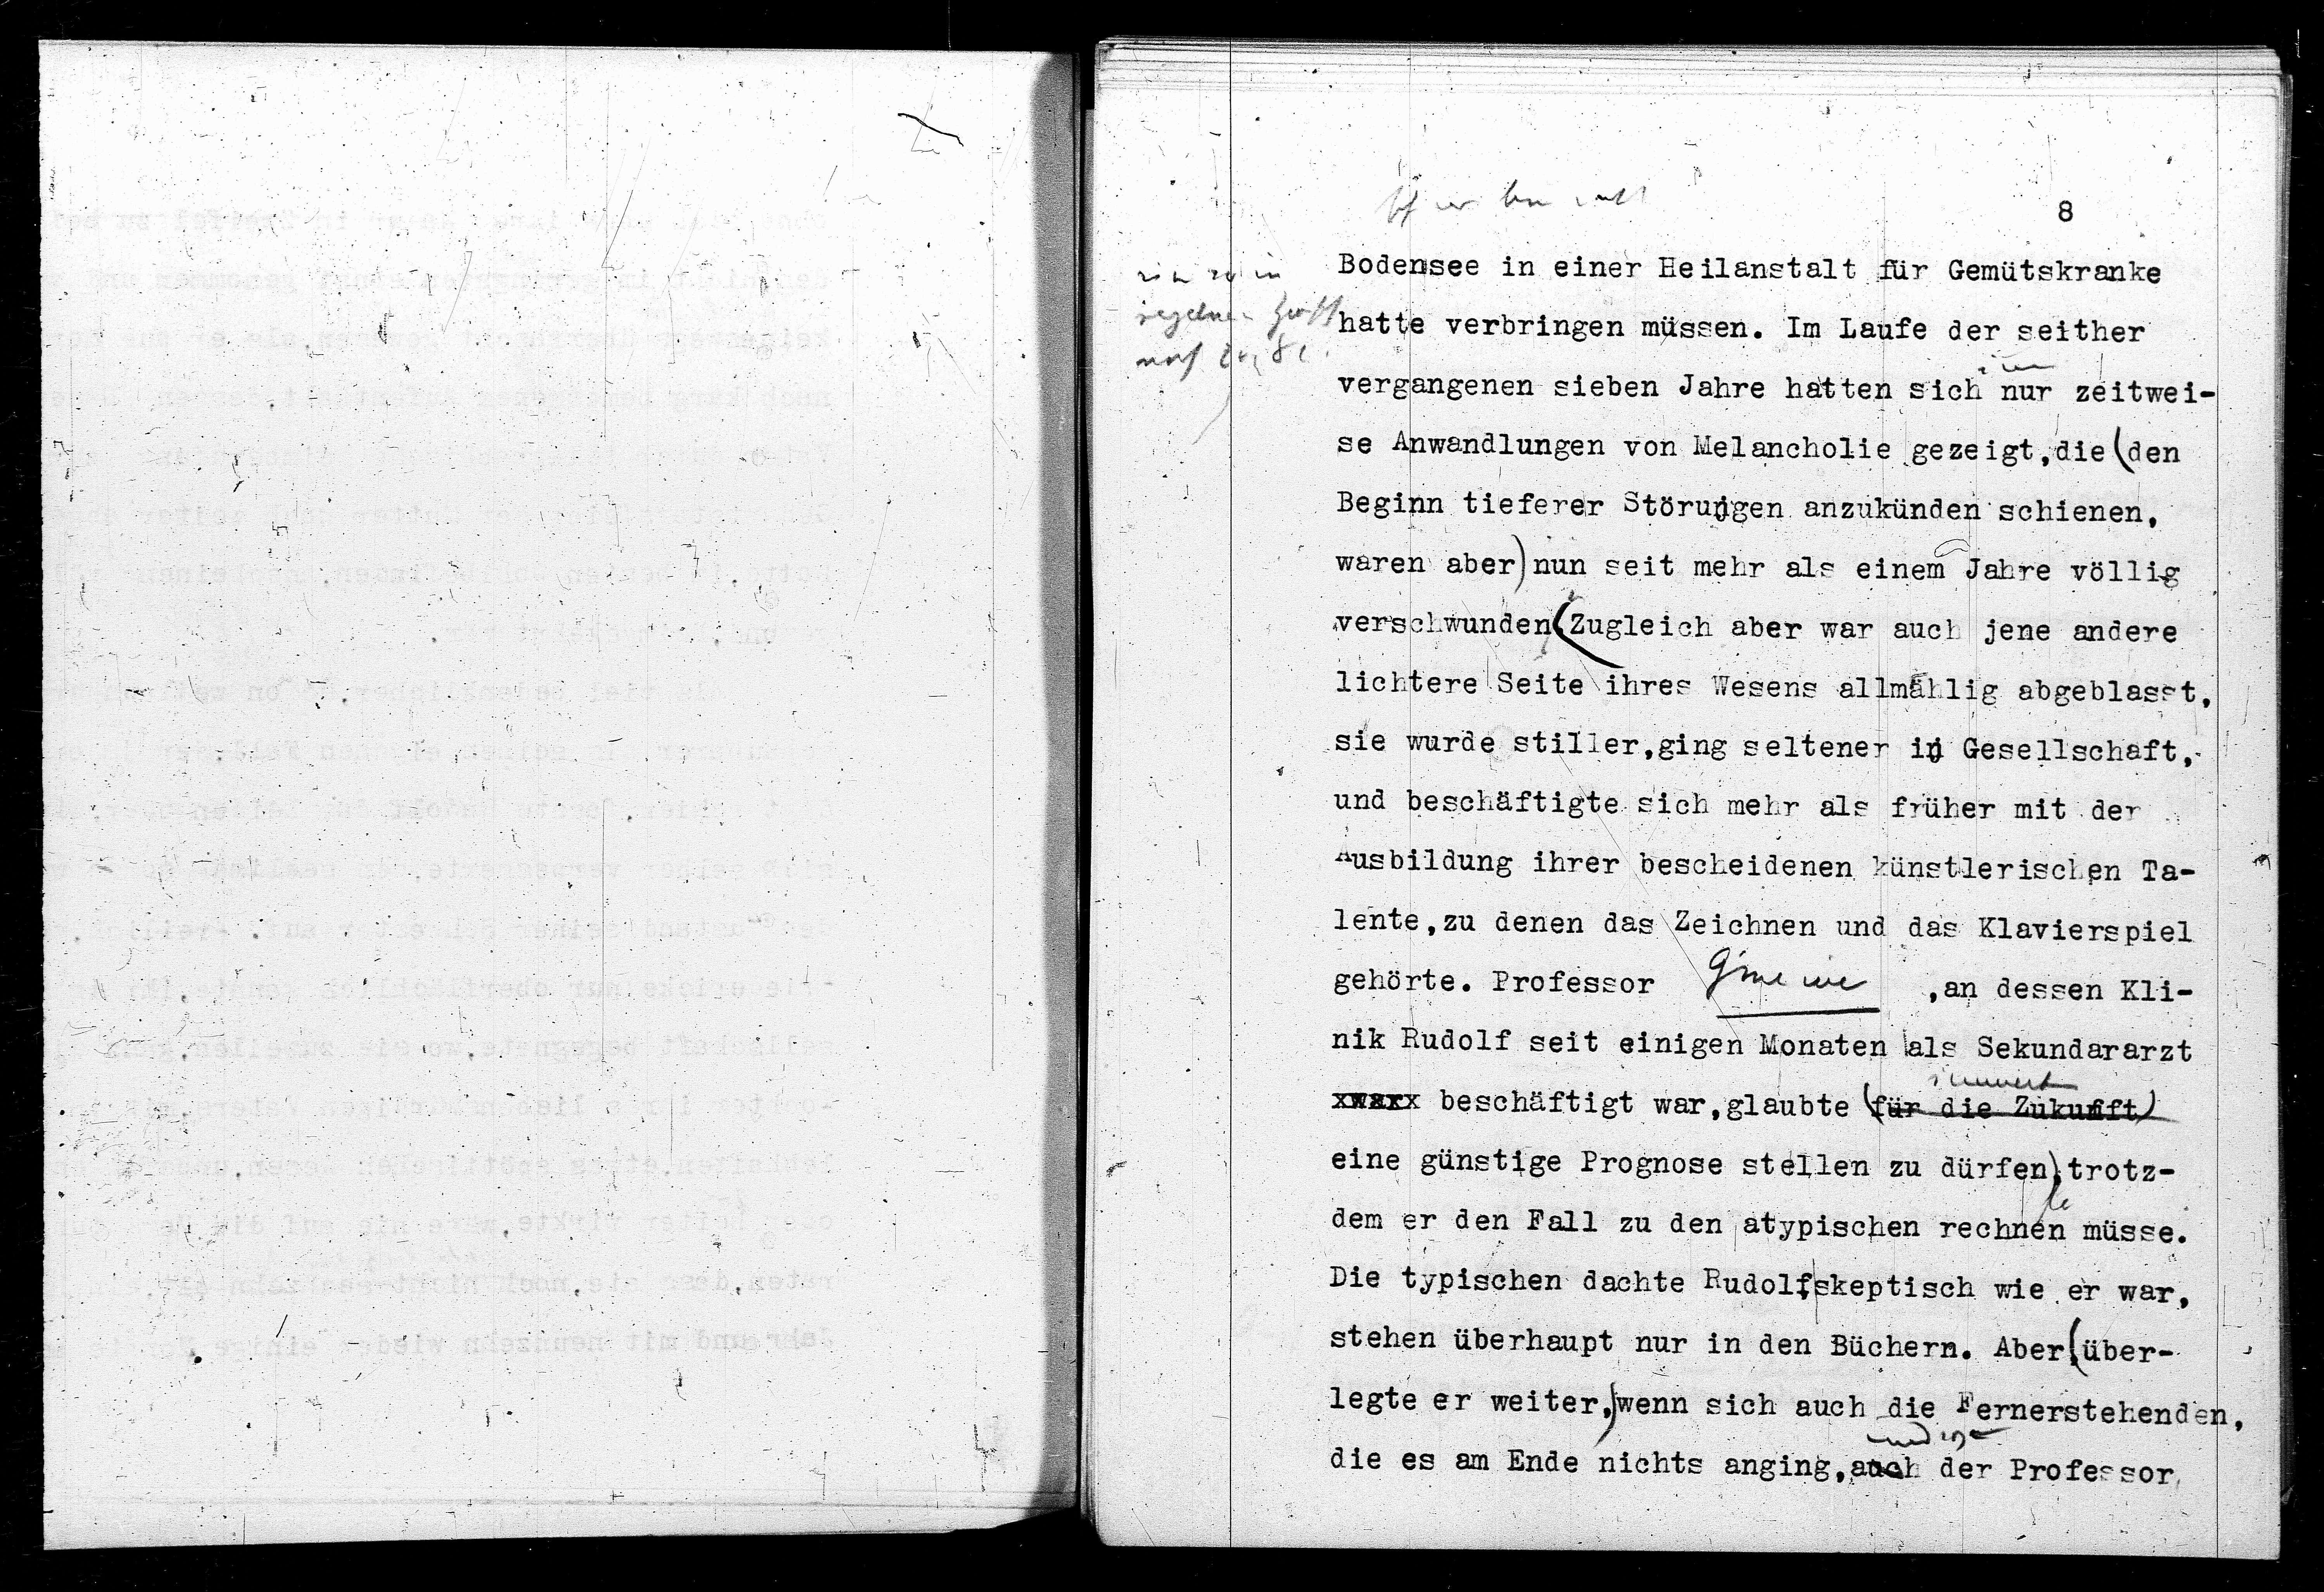 8
Bodensee in einer Heilanstalt für Gemütskranke
hatte verbringen müssen. Im Laufe der seither
vergangenen sieben Jahre hatten sich nur zeitwei-
se Anwandlungen von Melancholie gezeigt,die(den
Beginn tieferer Störungen anzukünden schienen,
waren aber)nun seit mehr als einem Jahre völlig
verschwunden(Zugleich aber war auch jene andere
lichtere Seite ihres Wesens allmählig abgeblasst,
sie wurde stiller,ging seltener in Gesellschaft,
und beschäftigte sich mehr als früher mit der
Ausbildung ihrer bescheidenen künstlerischen Ta-
lente,zu denen das Zeichnen und das Klavierspiel
gehörte. Professor ,an dessen Kli-
nik Rudolf seit einigen Monaten als Sekundararzt
xwarx beschäftigt war,glaubte (für die Zukunft)
eine günstige Prognose stellen zu dürfen),trotz-
dem er den Fall zu den atypischen rechnen müsse.
Die typischen dachte Rudolf,skeptisch wie er war,
stehen überhaupt nur in den Büchern. Aber(über-
legte er weiter,)wenn sich auch die Fernerstehenden,
die es am Ende nichts anging,auch der Professor